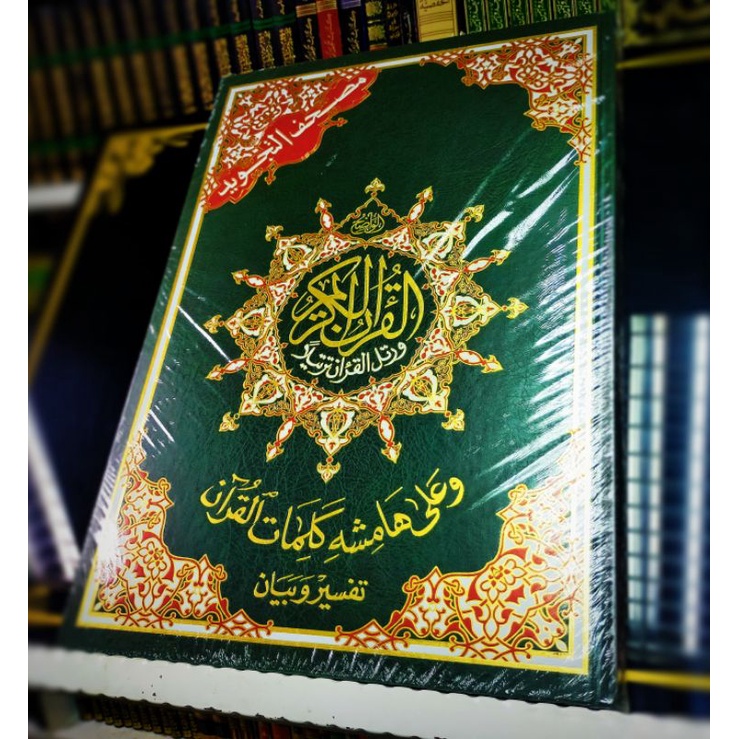 مصحف التجويد
الواضح
القرآن الكريم
ورتل القرآن ترتيلا
وعلى هامشه كلمات القرآن
تفسير وبيان